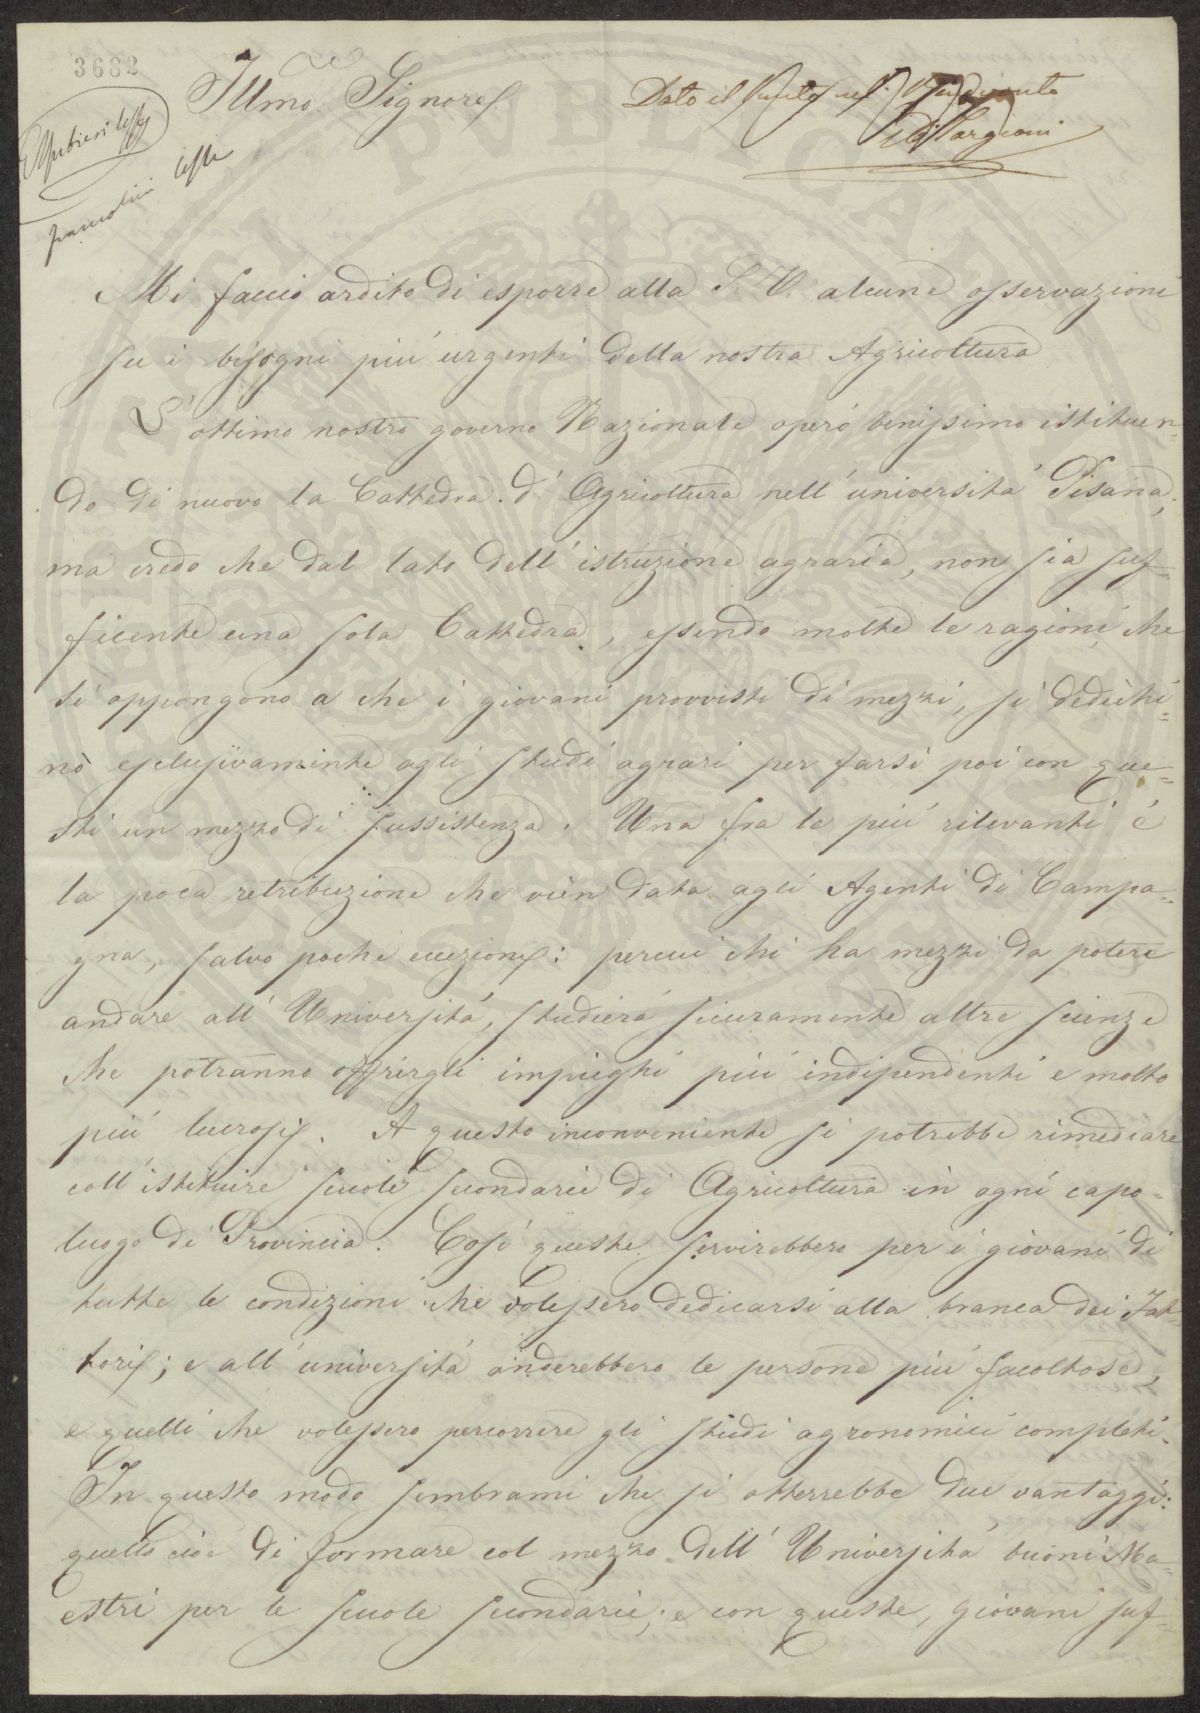 3682
Illmo. Signore
Dato il
Targioni
Mi faccio ardito di esporre alla S. V. alcune osservazioni
su i bisogni piú urgenti della nostra Agricoltura
L'ottimo nostro governo Nazionale operó benissimo istituen=
do di nuovo la Cattedra d'Agricoltura nell'universitá Pisana,
ma credo che dal lato dell'istruzione agraria, non sia suf=
ficente una sola Cattedra, essendo molte le ragioni che
si oppongono a che i giovani provvisti di mezzi, si dedichi=
no esclusivaminte agli studi agrari per farsi poi con que=
sti un mezzo di sussistenza. Una fra le piú rilevanti é
la poca retribuzione che vien data agli Agenti di Campa=
gna, salvo poche eccezioni: percui chi ha mezzi da potere
andare all'Universitá, studierá sicuramente altre scienze
che potranno offrirgli impieghi piú indipendenti e molto
piú lucrosi. A questo inconveniente si potrebbe rimediare
coll'istituire scuole scondarie di Agricoltura in ogni capo=
luogo di Provincia. Cosí queste servirebbero per i giovani di
tutte le condizioni che volessero dedicarsi alla branca dei Fat=
tori; e all'universitá anderebbero le persone piú facoltose,
e quelli che volessero percorrere gli studi agronomici completi.
In questo modo sembrami che si otterrebbe due vantaggi:
quello cioé di formare col mezzo dell'Universitá buoni Ma=
estri per le scuole scondarie; e con queste, giovani suf=